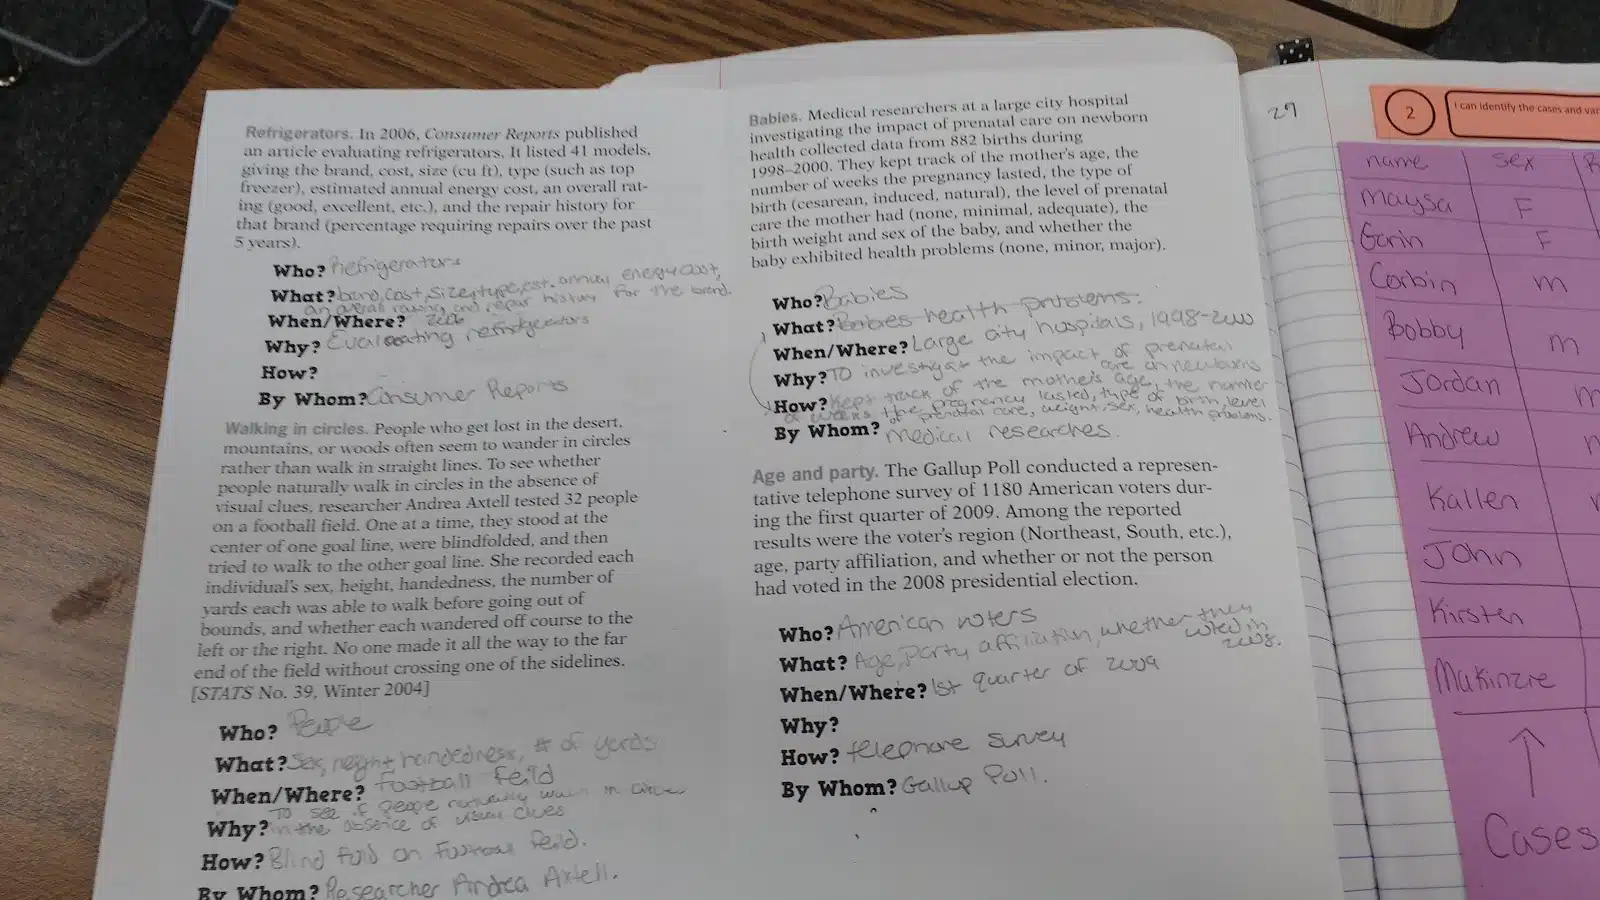 Refrigerators. In 2006, Consumer Reports published
an article evaluating refrigerators. It listed 41 models,
giving the brand, cost, size (cu ft), type (such as top
freezer), estimated annual energy cost, an overall rat-
ing (good, excellent, etc.), and the repair history for
that brand (percentage requiring repairs over the past
5 years).
Who? Refrigerators
What? brand, cost, size, type, est. annual energy cost,
an overall rating, and repair history for the brand.
When/Where? 2006
Why? Evaluating refridgeerators
How?
By Whom? Consumer Reports
Walking in circles. People who get lost in the desert,
mountains, or woods often seem to wander in circles
rather than walk in straight lines. To see whether
people naturally walk in circles in the absence of
visual clues, researcher Andrea Axtell tested 32 people
on a football field. One at a time, they stood at the
center of one goal line, were blindfolded, and then
tried to walk to the other goal line. She recorded each
individual's sex, height, handedness, the number of
yards each was able to walk before going out of
bounds, and whether each wandered off course to the
left or the right. No one made it all the way to the far
end of the field without crossing one of the sidelines.
[STATS No. 39, Winter 2004]
Who? People
What? Sex, height, handedness, # of yards
When/Where? Football feild
To see if people naturally walk in circles
Why? in the absence of visual clues
How? Blind fold on football feild.
By Whom? Researcher Andrea Axtell.
Babies. Medical researchers at a large city hospital
investigating the impact of prenatal care on newborn
health collected data from 882 births during
1998–2000. They kept track of the mother's age, the
number of weeks the pregnancy lasted, the type of
birth (cesarean, induced, natural), the level of prenatal
care the mother had (none, minimal, adequate), the
birth weight and sex of the baby, and whether the
baby exhibited health problems (none, minor, major).
Who? Babies
What? Babies health problems.
When/Where? Large city hospitals, 1998-2000
Why? To investigate the impact of prenatal
care on newborns
How? Kept track of the mother's age, the number
of weeks the pregnancy lasted, type of birth, level
of prenatal care, weight, sex, health problems.
By Whom? medical researches.
Age and party. The Gallup Poll conducted a represen-
tative telephone survey of 1180 American voters dur-
ing the first quarter of 2009. Among the reported
results were the voter's region (Northeast, South, etc.),
age, party affiliation, and whether or not the person
had voted in the 2008 presidential election.
Who? American voters
What? Age, Party affiliation, whether they
voted in
2008.
When/Where? 1st quarter of 2009
Why?
How? telephone survey
By Whom? Gallup Poll.
29
2
I can identify the cases and
name sex
Maysa F
Gorin F
Corbin m
Bobby m
Jordan m
Andrew
Kallen
John
Kirsten
Makinzie
Cases